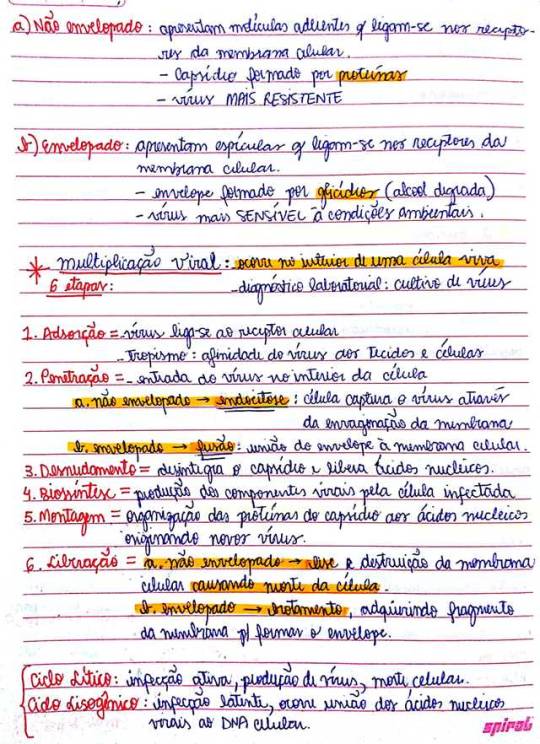 a) Não envelopado: apresentam moléculas aderentes q ligam-se nos recepto-
res da membrana celular.
- Capsídio formado por proteínas
- vírus MAIS RESISTENTE
b) Envelopado: apresentam espículas q ligam-se nos receptores da
membrana celular.
- envelope formado por glicídios (alcool degrada)
- vírus mais SENSÍVEL à condições ambientais.
* Multiplicação Viral: ocorre no interior de uma célula viva
6 etapas: - diagnóstico laboratorial: cultivo de vírus
1. Adsorção = vírus liga-se ao receptor celular
- Tropismo: afinidade do vírus aos tecidos e células
2. Penetração = - entrada do vírus no interior da célula
a. não envelopado → endocitose: célula captura o vírus através
da envaginação da membrana
b. envelopado → fusão: união do envelope à membrana celular.
3. Desnudamento = desintegra o capsídio e libera ácidos nucleicos.
4. Biossíntese = produção dos componentes virais pela célula infectada
5. Montagem = organização das proteínas do capsídio aos ácidos nucleicos
originando novos vírus.
6. Liberação = a. não envelopado → lise e destruição da membrana
celular causando morte da célula.
b. envelopado → brotamento, adquirindo fragmento
da membrana p/ formar o envelope.
Ciclo Lítico: infecção ativa, produção de vírus, morte celular.
Ciclo Lisogênico: infecção latente, ocorre união dos ácidos nucleicos
virais ao DNA celular.
spiral